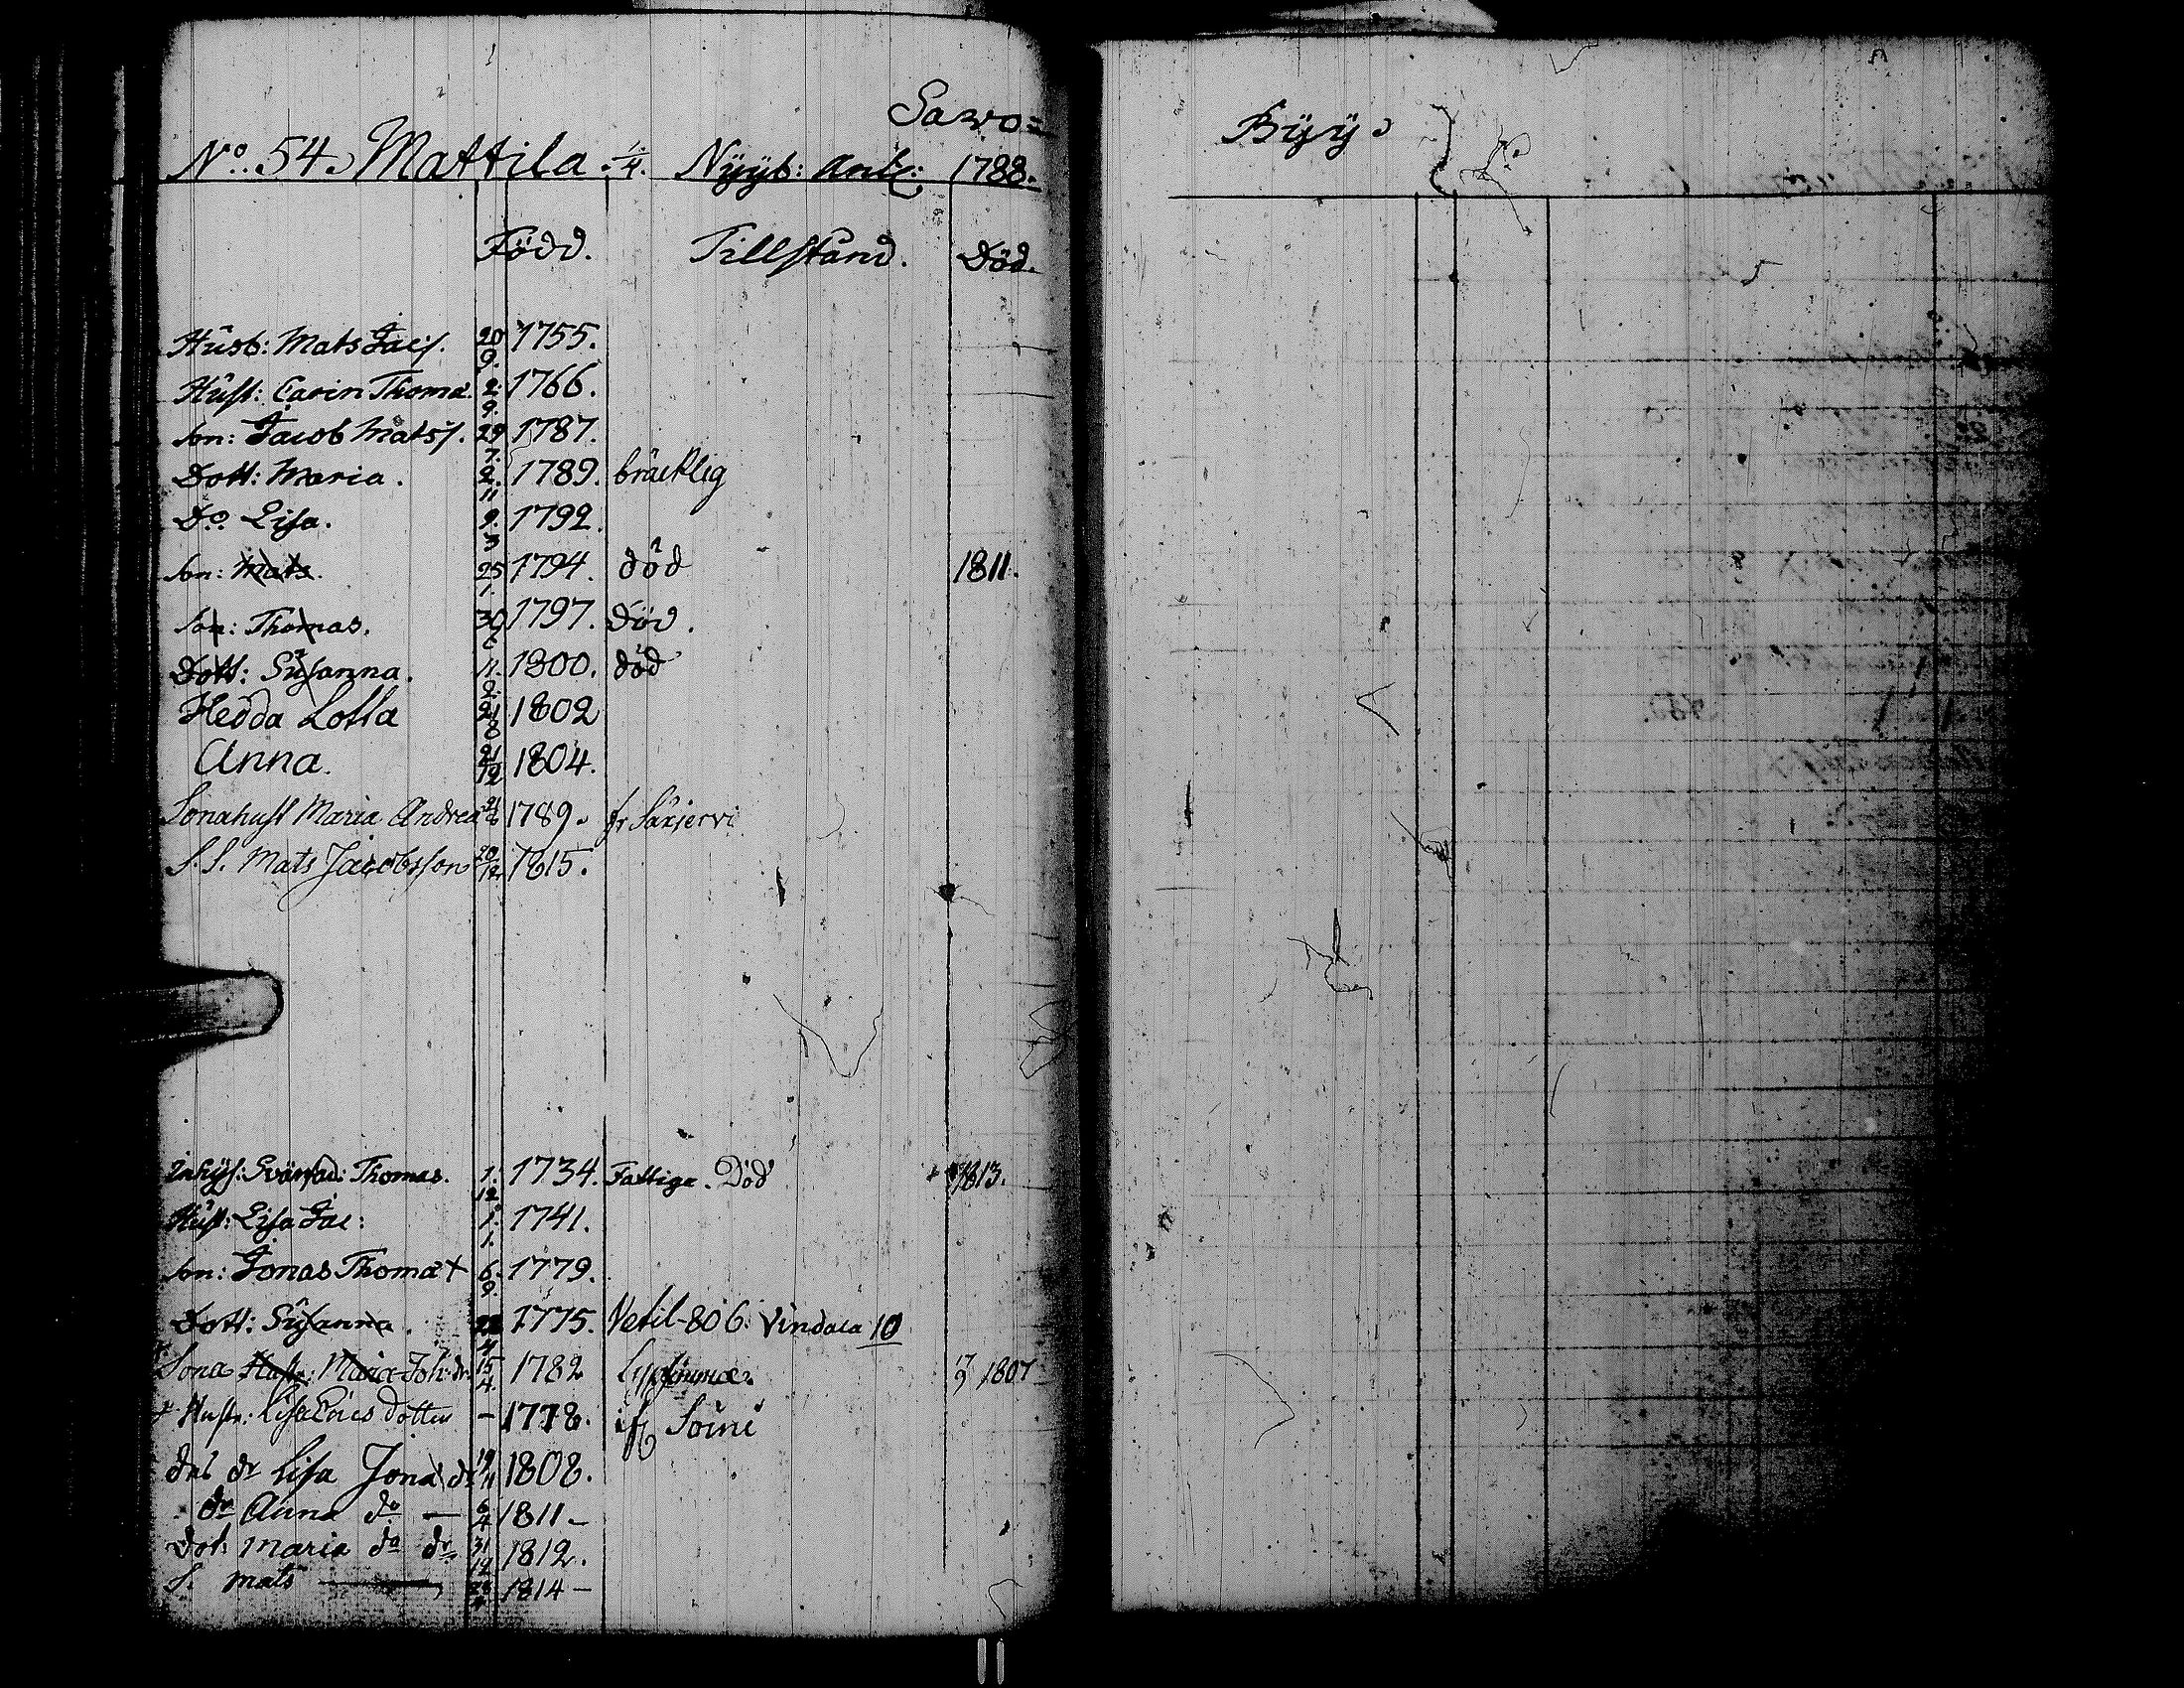 Sawo= Byy.
No. 54. Mattila. 1/4. Nyyb: Ank: 1788.
Född. Tillstånd. Död.
Husb: Mats Jacs. 20/9. 1755.
Hust: Carin Thomæ. 2/9. 1766.
Son: Jacob Matss. 29/7. 1787.
Dott: Maria. 2./11 1789. bräcklig
Do. Lisa. 9./3 1792.
Son: Mats. 25/1. 1794. död 1811.
Son: Thomas. 30/6 1797. död.
Dott: Susanna. 11./2. 1800. död
Hedda Lotta 21/8 1802
Anna. 21/12 1804.
Sonahust Maria Andreæ 1789. fr Saxjervi
S. S. Mats Jacobsson 20/12 1815.
Inhys: Thomas. 1./12 1734. Fattige. Död 1813.
Hust: Lisa Jac: 1./1. 1741.
Son: Jonas Thomæ + 6./9. 1779.
Dott: Susanna. 22/4 1775. Vetil-806. Vindala 10
Sona Hustr: Maria Joh: dr 15/4. 1782 17/9 1807
+ Hustr: Lisa Erics dotter - 1778. if Soini
des dr Lisa Jonæ dr 19/11 1808.
dr Anna do — 6/4 1811-
Dot: Maria do dr 31/12 1812.
S. Mats — 1814-